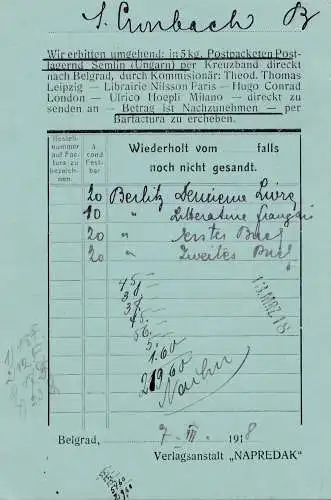 S. Cronbach B
Wir erbitten umgehend: in 5 kg. Postpacketen Post-
lagernd Semlin (Ungarn) per Kreuzband direkt
nach Belgrad, durch Kommisionär: Theod. Thomas
Leipzig — Librairie Nilsson Paris — Hugo Conrad
London — Ulrico Hoepli Milano — direkt zu
senden an — Betrag ist Nachzunehmen — per
Barfactura zu ercheben.
Bestell-
nummer
auf Fac-
tura zu
bezeich-
nen.
à
cond
Fest-
bar
Wiederholt vom falls
noch nicht gesandt.
20 Berlitz Deuxieme Livre
10 " Litterature français
20 " erstes Buch
20 " Zweites Buch
13. MRZ. 18
45.
38.
56.
5.
1.60
219,60
Nachn
Belgrad, 7-III. 1918
Verlagsanstalt „NAPREDAK"